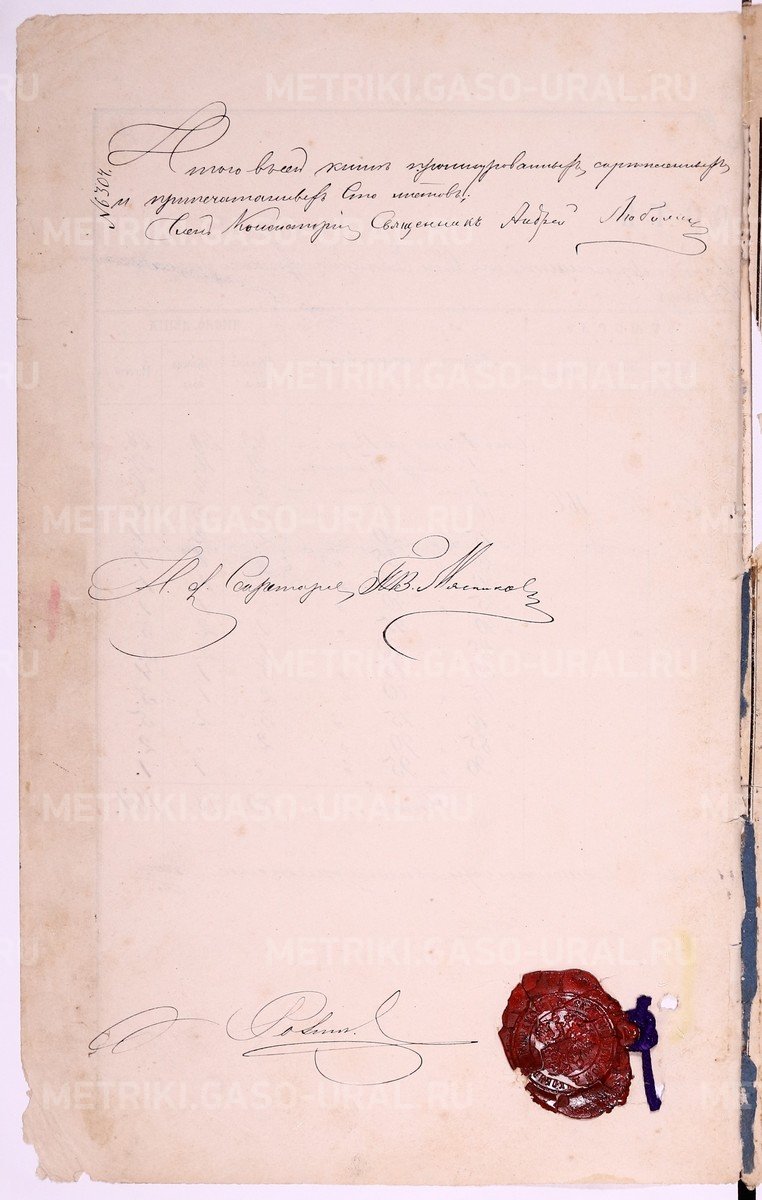 № 6304.
Итого в сей книге прошнурованныхъ, скрепленныхъ
и припечатанныхъ Сто листовъ.
Членъ Консисторіи, Священникъ Андрей
И. д. Секретаря, В. Мясников
METRIKI.GASO-URAL.RU
METRIKI.GASO-URAL.RU
METRIKI.GASO-URAL.RU
METRIKI.GASO-URAL.RU
METRIKI.GASO-URAL.RU
METRIKI.GASO-URAL.RU
METRIKI.GASO-URAL.RU
METRIKI.GASO-URAL.RU